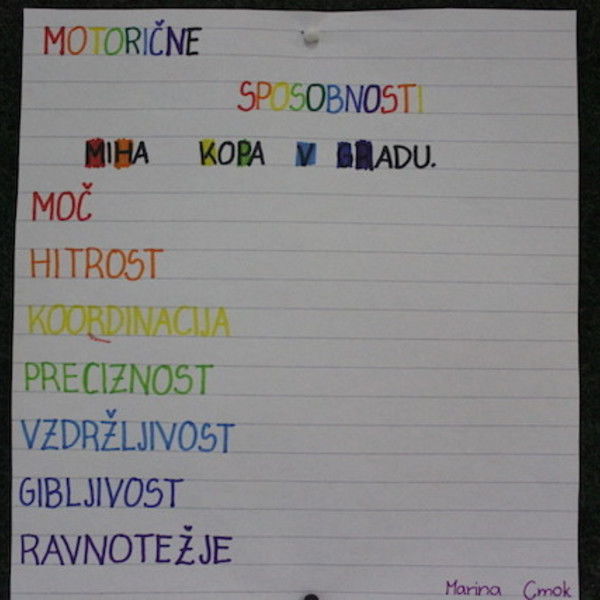 MOTORIČNE
SPOSOBNOSTI
MIHA KOPA V GRADU.
MOČ
HITROST
KOORDINACIJA
PRECIZNOST
VZDRŽLJIVOST
GIBLJIVOST
RAVNOTEŽJE
Marina Cmok